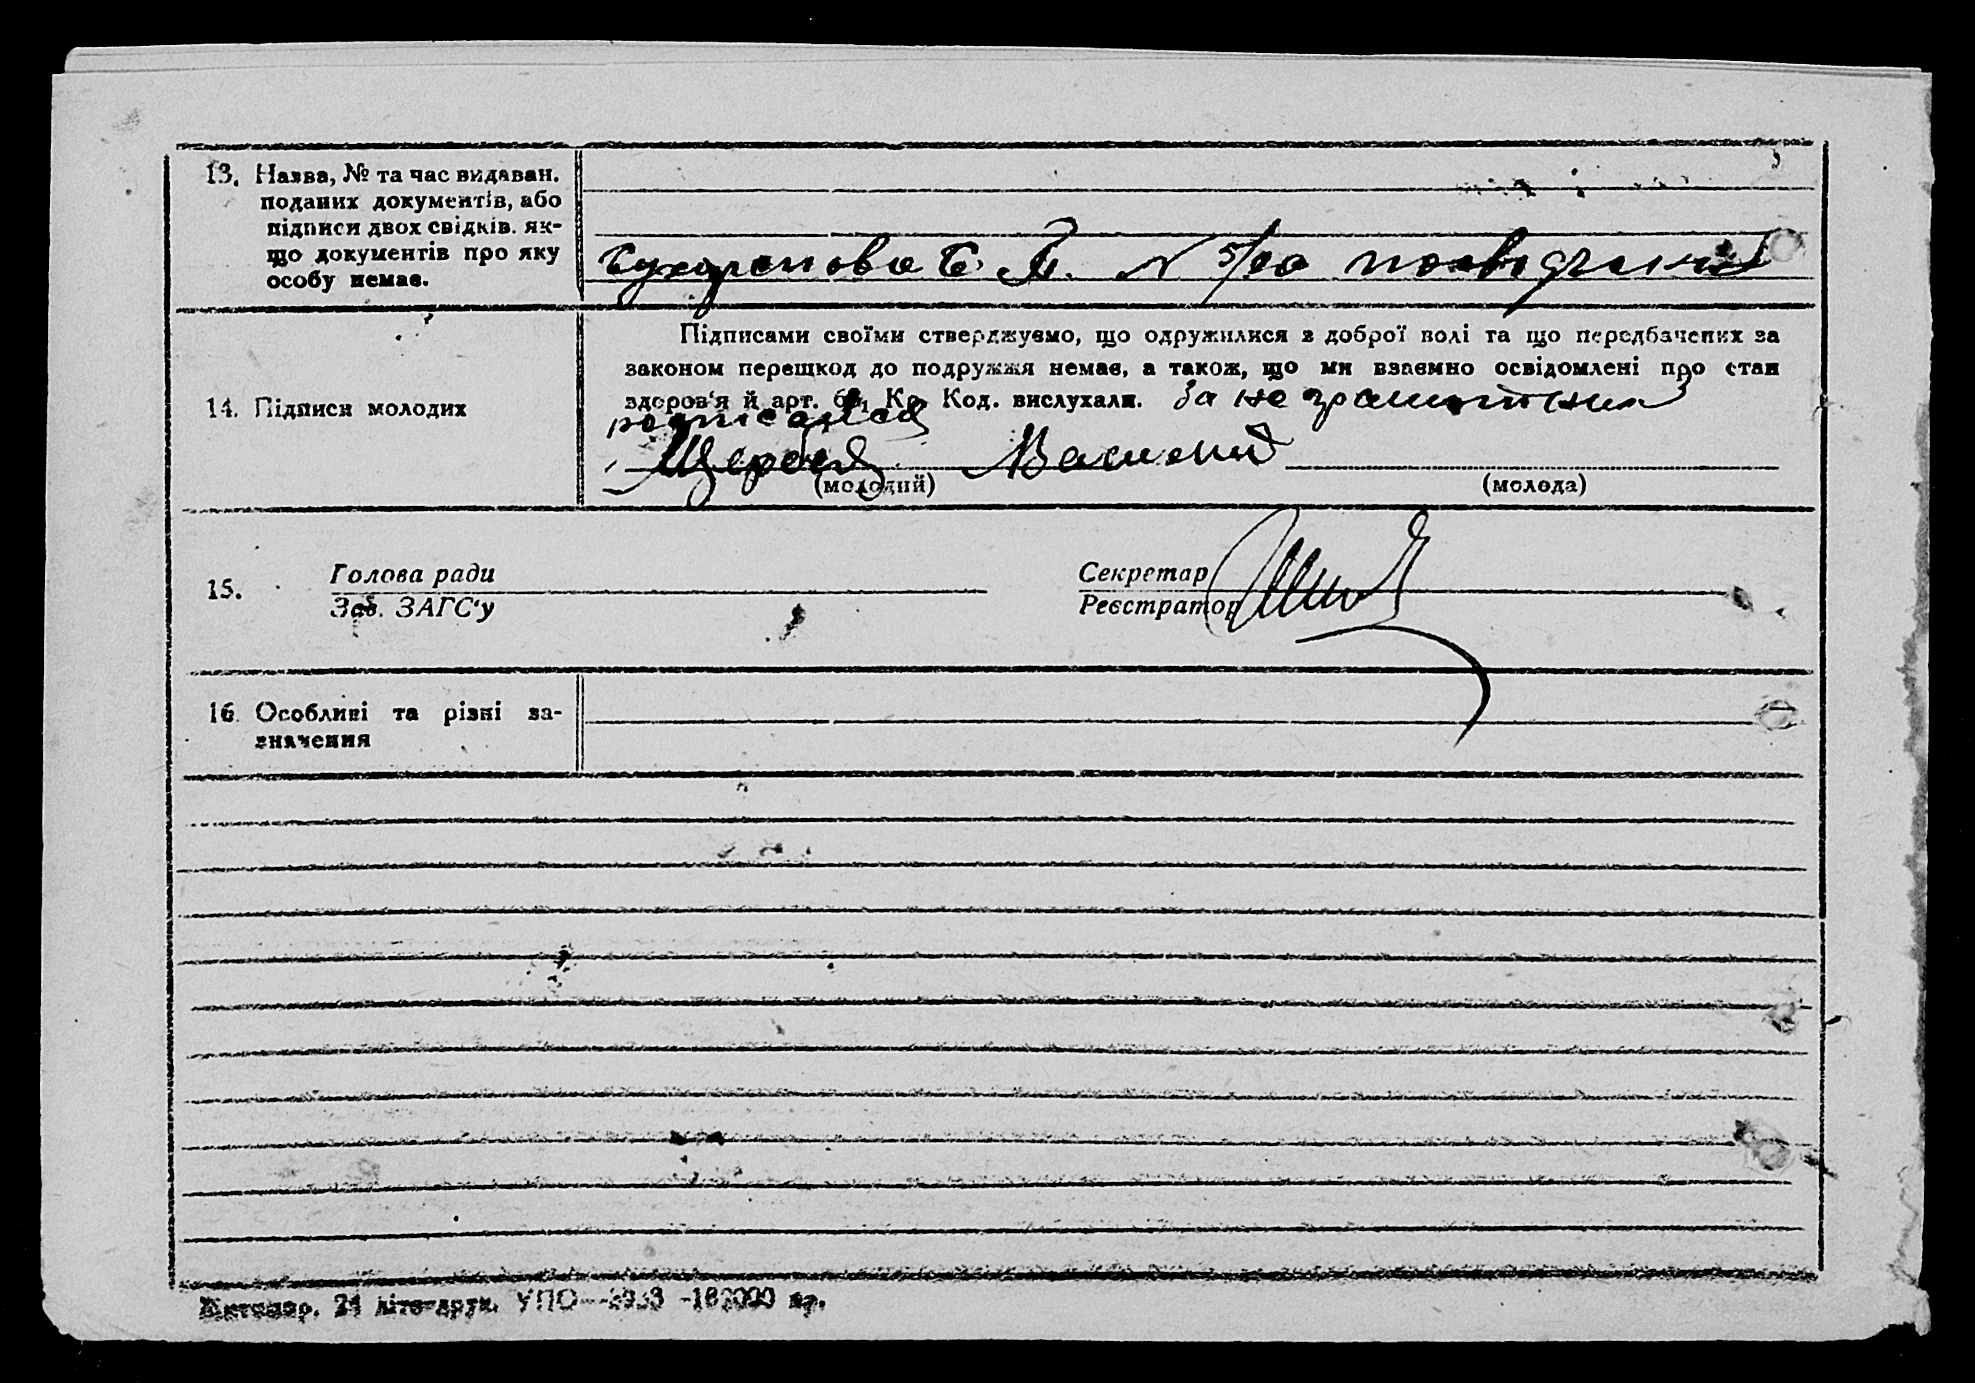 13. Назва, № та час видаван.
поданих документів, або
підписи двох свідків. як-
що документів про яку
особу немає.
Є. П. N 5/00 посвідчання
Підписами своїми стверджуємо, що одружилися з доброї волі та що передбачених за
законом перешкод до подружжя немає, а також, що ми взаємно освідомлені про стан
здоров'я й арт. Кр. Код. вислухали. За не грамотних
14. Підписи молодих
росписался
Щербая Василий
(молодий) (молода)
Голова ради Секретар
15.
Зав. ЗАГС'у Реєстратор
16. Особливі та різні за-
значення
Житомир. 24 літо-друк. УПО